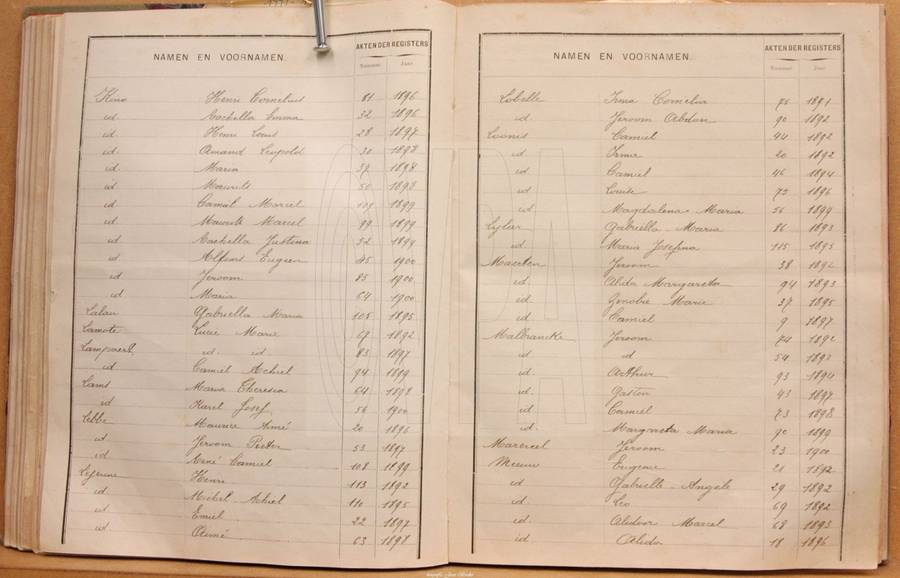 NAMEN EN VOORNAMEN.
AKTEN DER REGISTERS
Nummer Jaar
Kino Henri Cornelius 81 1896
id. Rachella Emma 32 1896
id. Henri Louis 28 1897
id. Amand Leopold 30 1898
id. Maria 37 1898
id Maurits 50 1898
id. Camiel Marcel 109 1899
id. Maurits Marcel 99 1899
id Rachella Justina 32 1899
id Alfons Eugeen 45 1900
id Jeroom 85 1900
id Maria 64 1900
Lalau Gabriella Maria 105 1895
Lamote Lucie Marie 67 1892
id. id. 83 1897
id Camiel Achiel 94 1899
Lams Maria Theresia 64 1898
id Karel Josef 56 1900
Lebbe Maurice Aimé 20 1896
id. Jeroom Pieter 53 1897
id René Camiel 108 1899
Lejeune Henri 113 1892
id. Michel Achiel 110 1895
id. Emiel 22 1897
id. Aimé 63 1898
NAMEN EN VOORNAMEN.
AKTEN DER REGISTERS
Nummer Jaar
Lobelle Irma Cornelia 75 1891
id. Jeroom Abdon 90 1892
Loonis Camiel 44 1892
id Irma 20 1892
id Camiel 46 1894
id Louise 72 1896
id. Magdalena Maria 56 1899
Gabriella Maria 86 1893
id. Maria Josefina 115 1895
Maerten Jeroom 38 1892
id. Alida Margareta 94 1893
id. Zenobie Marie 37 1895
id. Camiel 9 1897
Malbrancke Jeroom 74 1892
id. id 54 1893
id. Arthur 93 1894
id. Gaston 43 1897
id. Camiel 73 1898
id. Margareta Maria 90 1899
Marereel Jeroom 23 1900
Meeuw Eugenie 21 1892
id. Gabrielle Angele 29 1892
id. Leo 69 1892
id. Alidoor Marcel 68 1893
id Alida 18 1896